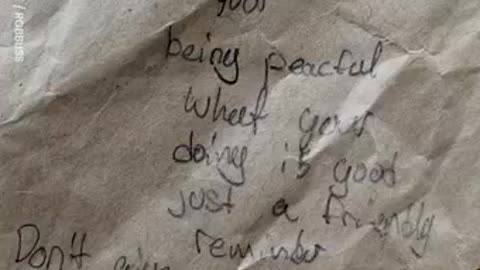 being peacful
whet your
doing is good
just a friendly
reminder
Don't